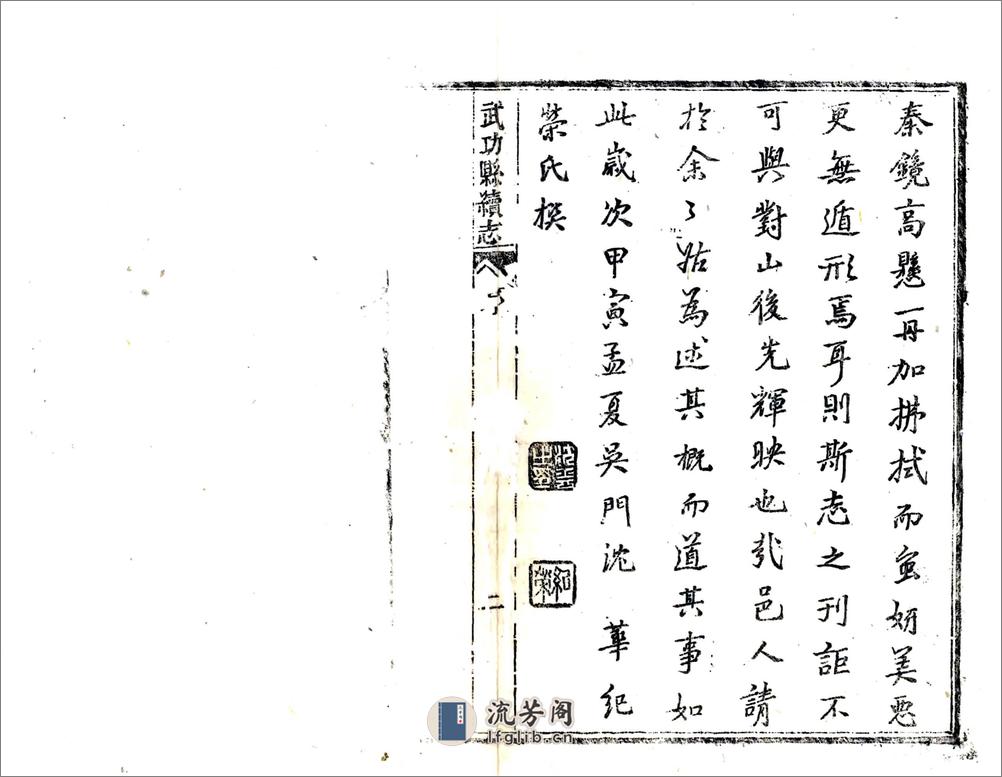 秦鏡高懸再加拂拭而蚩妍美惡
更無遁形焉耳則斯志之刊詎不
可與對山後先輝映也哉邑人請
於余々姑為述其概而道其事如
此歲次甲寅孟夏吳門沈 華紀
榮氏撰
紀榮
武功縣續志 序 二
流芳阁
lfglib.cn